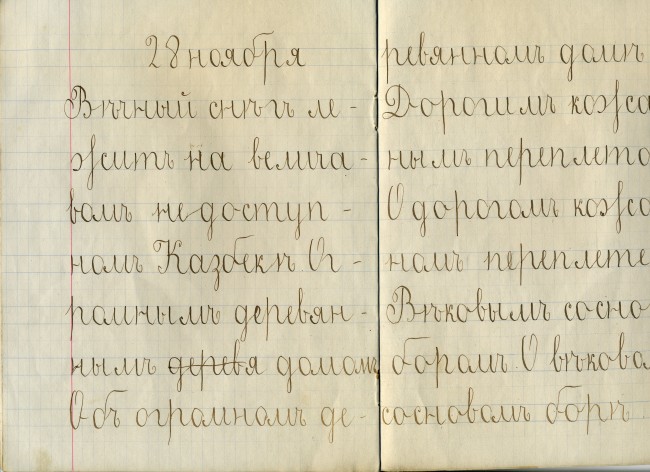 28 ноября
Вѣчный снѣгъ ле-
житъ на велича-
вомъ недоступ-
номъ Казбекѣ Ог-
ромнымъ деревян-
нымъ деревя домомъ
Объ огромномъ де-
ревянномъ домѣ
Дорогимъ кожа
нымъ переплето
О дорогомъ кожа
номъ переплете
Вѣковымъ сосно
боромъ О вѣково
сосновомъ борѣ